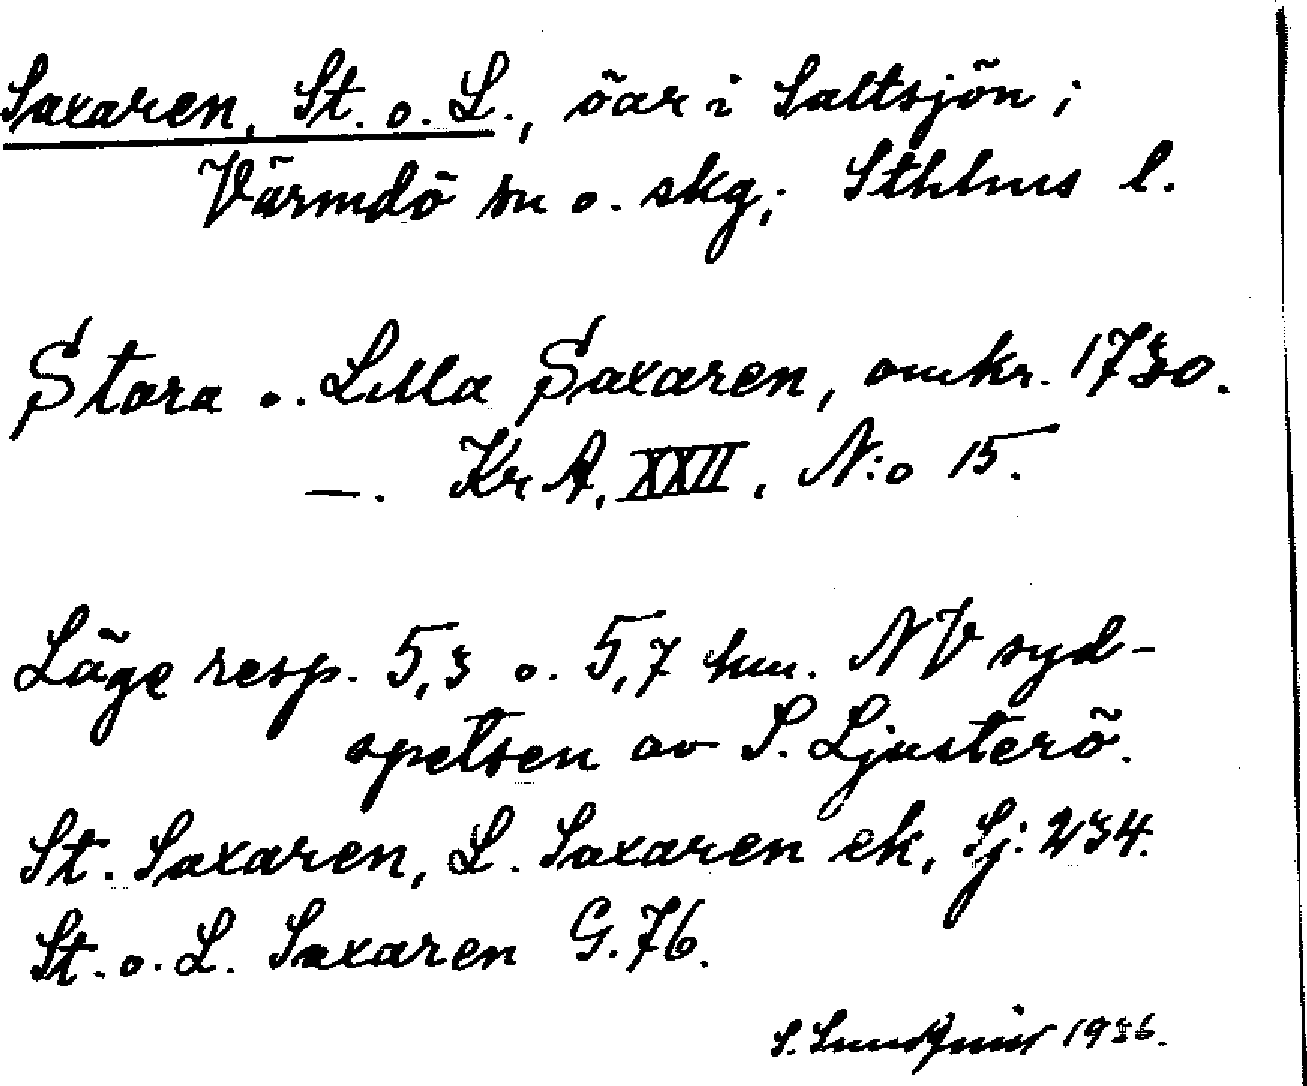 Saxaren, St. o. L., öar i Saltsjön;
Värmdö sn o. skg; Sthlms l.
Stora o. Lilla Saxaren, omkr. 1730.
—. KrA, XXII, N:o 15.
Läge resp. 5,3 o. 5,7 km. NV syd-
spetsen av S. Ljusterö.
St. Saxaren, L. Saxaren ek, Sj: 234.
St. o. L. Saxaren G. 76.
S. Lundqvist 1936.